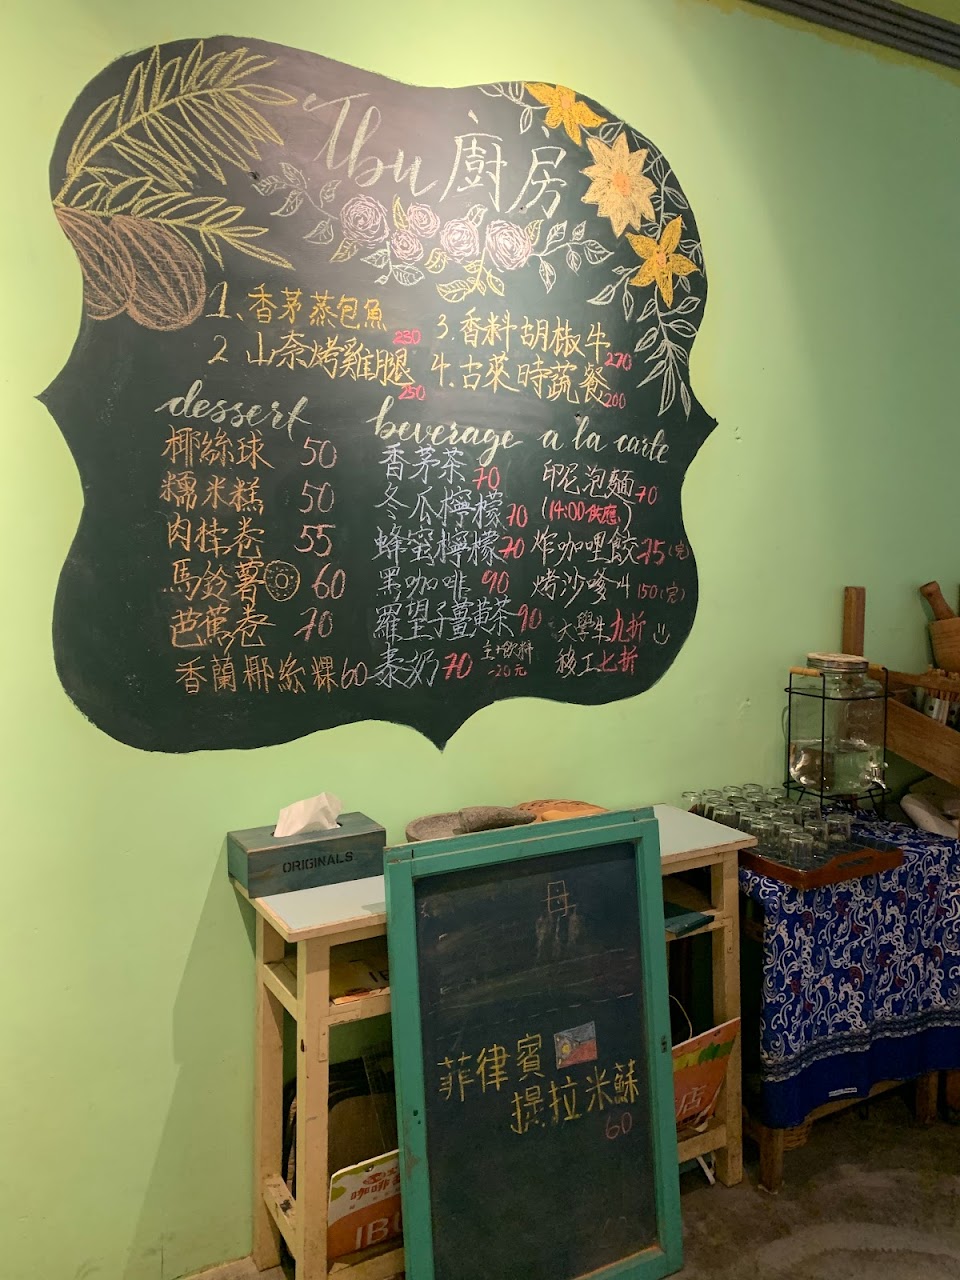 Ibu廚房
1、香茅蒸包魚 230
2 山奈烤雞腿 250
3.香料胡椒牛 270
4.古菜時蔬餐 200
dessert
椰絲球 50
糯米糕 50
肉桂卷 55
馬鈴薯 60
芭蕉卷 70
香蘭椰絲粿 60
beverage
香茅茶 70
冬瓜檸檬 70
蜂蜜檸檬 70
黑咖啡 90
羅望子薑黃茶 90
棗奶 70
主+飲料
-20元
a la carte
印尼泡麵 70
(14:00供應)
炸咖哩餃 75(完)
烤沙嗲 150(完)
大學生九折
移工七折
ORIGINALS
菲律賓
提拉米蘇
60
咖啡
店